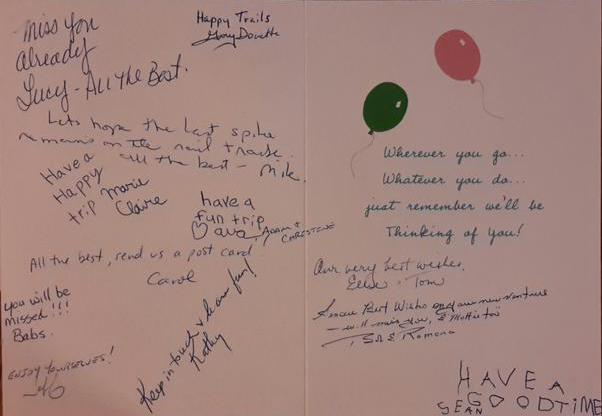 miss you
already
Lucy - All the Best.
Happy Trails
Lets hope the last spike
remains on the rail track.
all the best - Mike.
Have a
Happy
trip Marie
Claire
have a
fun trip
♡ ava
Adam &
CHRISTINE
All the best, send us a post card
Carol
you will be
missed!!!
Babs.
Keep in touch & have fun!
Kathy
ENJOY YOURSELVES!
Wherever you go...
Whatever you do...
just remember we'll be
Thinking of You!
Our very best wishes,
Elise & Tom
Sincere Best Wishes on your new venture
- will miss you,
Ramona
HAVE A
GOOD TIME
SEAN